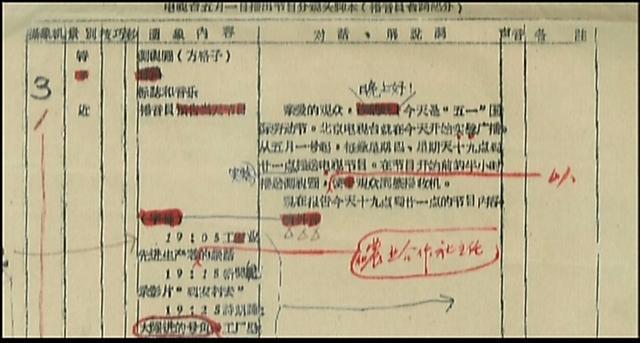 电视台五月一日播出节目分镜头脚本（播音员看词部分）
摄象机 景别 技巧 秒 图象内容 对话、解说词 声音 备注
3
调视图（方格子）
标志和音乐
近 播音员
晚上好！
亲爱的观众，今天是“五一”国
际劳动节。北京电视台就在今天开始实验广播。
从五月一号起，每逢星期四、星期天十九点到
廿一点播送电视节目。在节目开始前的半小时
实验
播送调视图，观众调整接收机。
现在报告今天十九点到廿一点的节目内容
（字幕）
19:05工业
先进生产者的谈话
农业合作社主任
19:15
录影片“到农村去”
19:25诗朗诵
大跃进的号角 工厂里